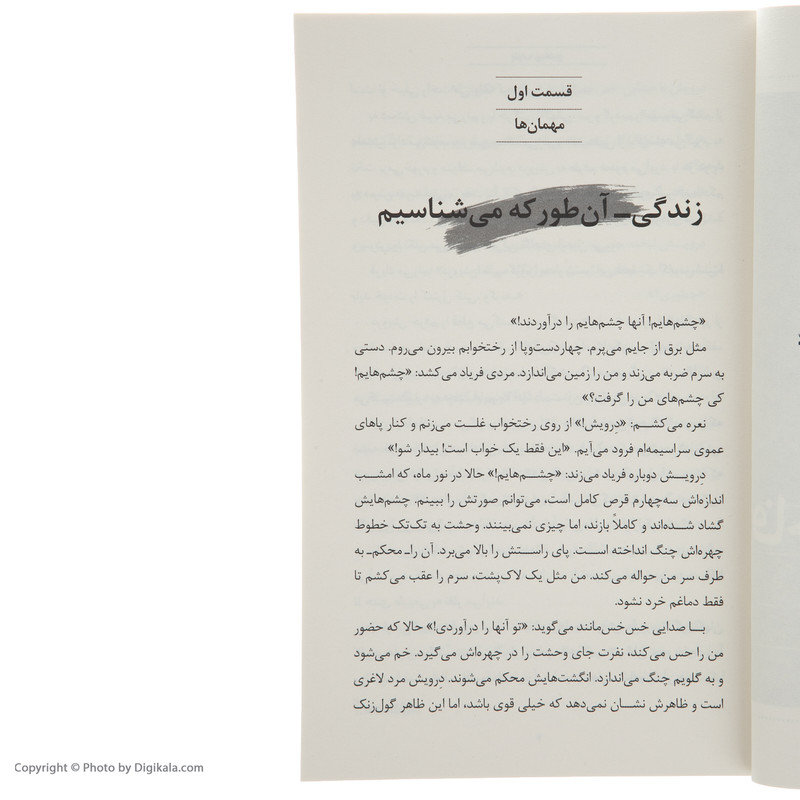 قسمت اول
مهمان‌ها
زندگی ـ آن‌طور که می‌شناسیم
«چشم‌هایم! آنها چشم‌هایم را درآوردند!»
مثل برق از جایم می‌پرم. چهاردست‌وپا از رختخوابم بیرون می‌روم. دستی
به سرم ضربه می‌زند و من را زمین می‌اندازد. مردی فریاد می‌کشد: «چشم‌هایم!
کی چشم‌های من را گرفت؟»
نعره می‌کشم: «دِرویش!» از روی رختخواب غلت می‌زنم و کنار پاهای
عموی سراسیمه‌ام فرود می‌آیم. «این فقط یک خواب است! بیدار شو!»
دِرویش دوباره فریاد می‌زند: «چشم‌هایم!» حالا در نور ماه، که امشب
اندازه‌اش سه‌چهارم قرص کامل است، می‌توانم صورتش را ببینم. چشم‌هایش
گشاد شده‌اند و کاملاً بازند، اما چیزی نمی‌بینند. وحشت به تک‌تک خطوط
چهره‌اش چنگ انداخته است. پای راستش را بالا می‌برد. آن را ـ محکم ـ به
طرف سر من حواله می‌کند. من مثل یک لاک‌پشت، سرم را عقب می‌کشم تا
فقط دماغم خرد نشود.
با صدایی خس‌خس‌مانند می‌گوید: «تو آنها را درآوردی!» حالا که حضور
من را حس می‌کند، نفرت جای وحشت را در چهره‌اش می‌گیرد. خم می‌شود
و به گلویم چنگ می‌اندازد. انگشت‌هایش محکم می‌شوند. دِرویش مرد لاغری
است و ظاهرش نشان نمی‌دهد که خیلی قوی باشد، اما این ظاهر گول‌زنک
Copyright © Photo by Digikala.com